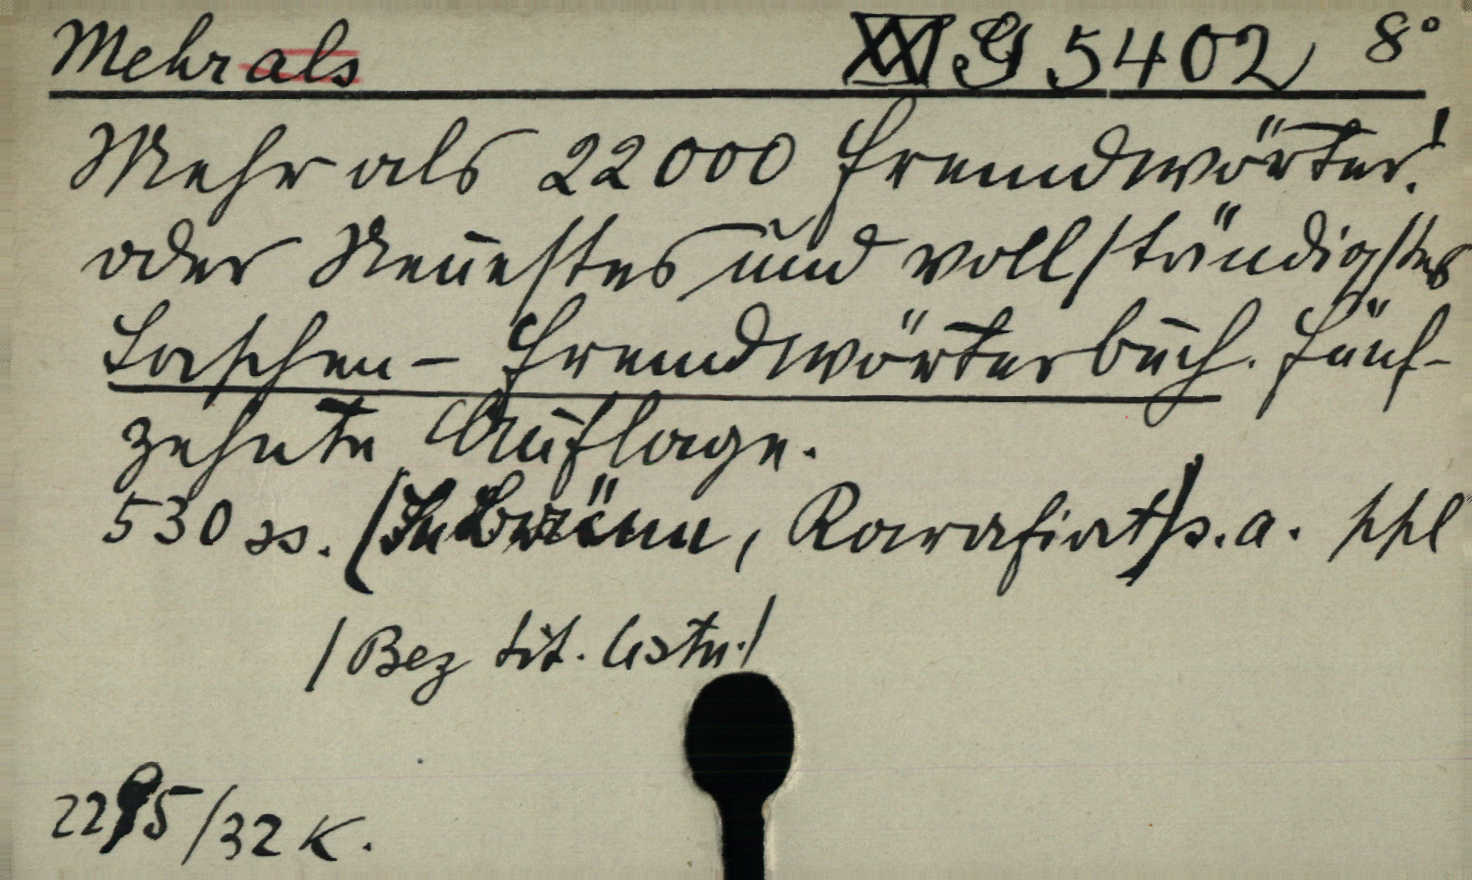 Mehr als XXI G 5402 8°
Mehr als 22000 Fremdwörter!
oder Neuestes und vollständigstes
Taschen-Fremdwörterbuch. Fünf-
zehnte Auflage.
530 ss. (In Brünn, Karafiat) s.a. ppl
/Bez tit. listu./
2295/32 K.